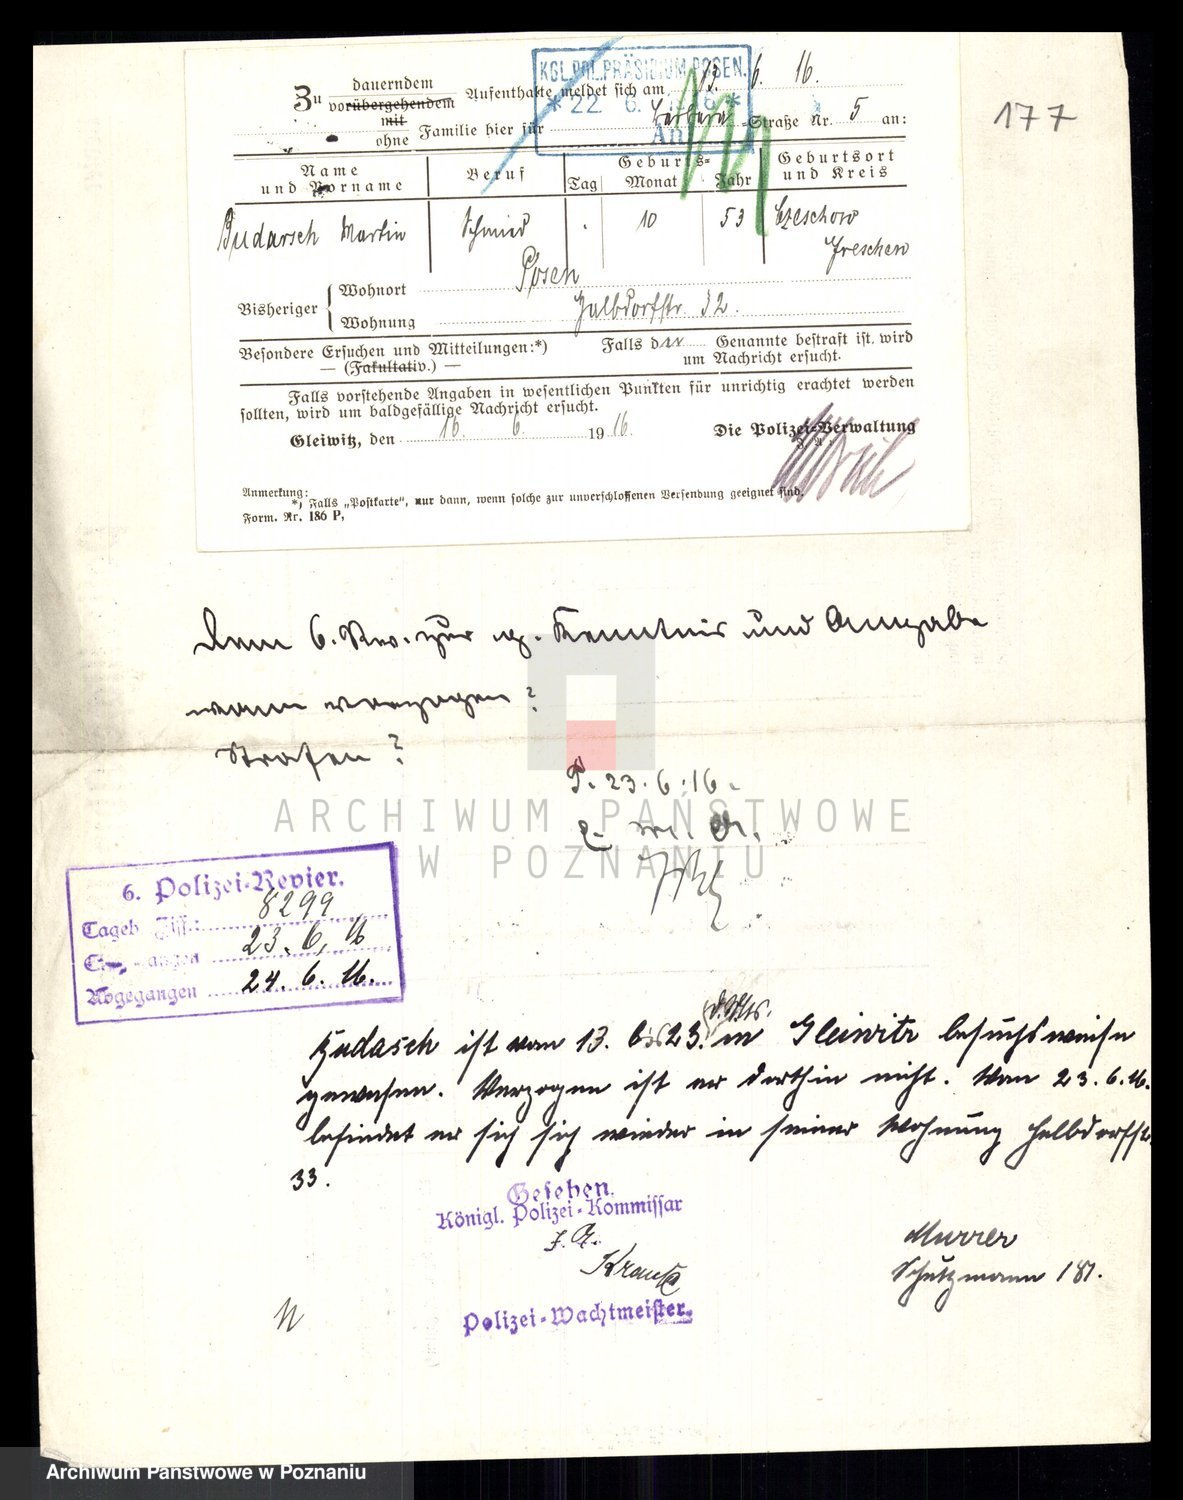 177
KGL.POL.PRÄSIDIUM POSEN.
* 22. 6. 16 *
Zu dauerndem
vorübergehendem Aufenthalte meldet sich am 13. 6. 16.
mit
ohne Familie hier für Barbara-Straße Nr. 5 an:
Name und Vorname
Beruf
Geburts-
Tag Monat Jahr
Geburtsort und Kreis
Budarsch Martin Schmied 10 53 Czeschow
Jreschen
Bisheriger
Wohnort Posen
Wohnung Halbdorfstr. 32.
Besondere Ersuchen und Mitteilungen:*)
— (Fakultativ.) —
Falls der Genannte bestraft ist, wird
um Nachricht ersucht.
Falls vorstehende Angaben in wesentlichen Punkten für unrichtig erachtet werden
sollten, wird um baldgefällige Nachricht ersucht.
Gleiwitz, den 16. 6. 1916. Die Polizei-Verwaltung
Anmerkung:
*) Falls „Postkarte“, nur dann, wenn solche zur unverschlossenen Versendung geeignet sind.
Form. Nr. 186 P,
Dem 6. Rev. zur g. Kenntnis und Angabe
wann verzogen?
Strafen?
P. 23.6.16.
ARCHIWUM PAŃSTWOWE
W POZNANIU
6. Polizei-Revier.
Tageb. Ziff.: 8299
Eingegangen 23. 6. 16
Abgegangen 24. 6. 16.
d. Mts.
Hudasch ist vom 13. bis 23. in Gleiwitz besuchsweise
gewesen. Verzogen ist er dorthin nicht. Vom 23.6.16.
befindet er sich sich wieder in seiner Wohnung Halbdorfstr.
33.
Gesehen.
Königl. Polizei-Kommissar
J. A.
Krause
Polizei-Wachtmeister.
Murrer
Schutzmann 181.
Archiwum Państwowe w Poznaniu